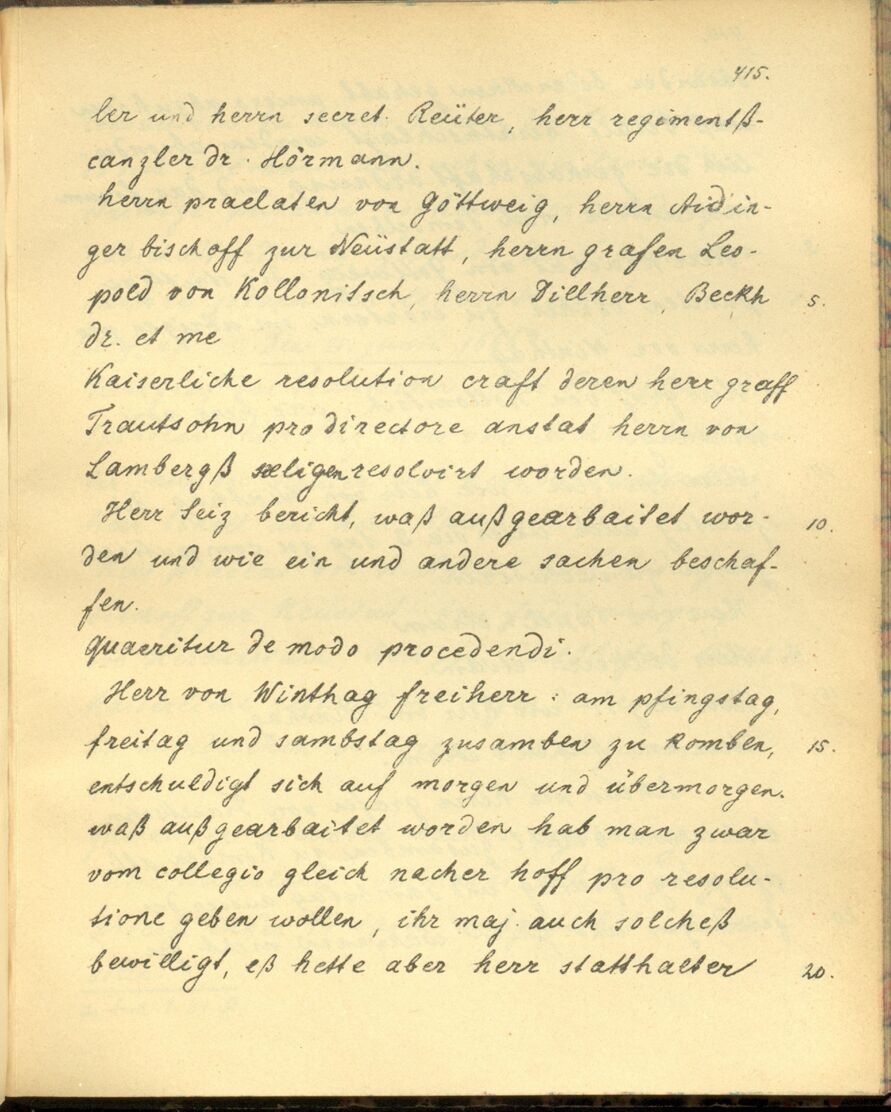 415.
ler und herrn secret. Reüter, herr regimentß-
canzler dr. Hörmann.
herrn praelaten von Göttweig, herrn Aidin-
ger bischoff zur Neüstatt, herrn grafen Leo-
pold von Kollonitsch, herrn Dillherr, Beckh 5.
dr. et me
Kaiserliche resolution craft deren herr graff
Trautsohn pro directore anstat herrn von
Lambergß seligen resolvirt worden.
Herr Seiz bericht, waß außgearbaitet wor- 10.
den und wie ein und andere sachen beschaf-
fen.
quaeritur de modo procedendi.
Herr von Winthag freiherr: am pfingstag,
freitag und sambstag zusamben zu komben, 15.
entschuldigt sich auf morgen und übermorgen.
waß außgearbaitet worden hab man zwar
vom collegio gleich nacher hoff pro resolu-
tione geben wollen, ihr maj. auch solcheß
bewilligt, eß hette aber herr statthalter 20.